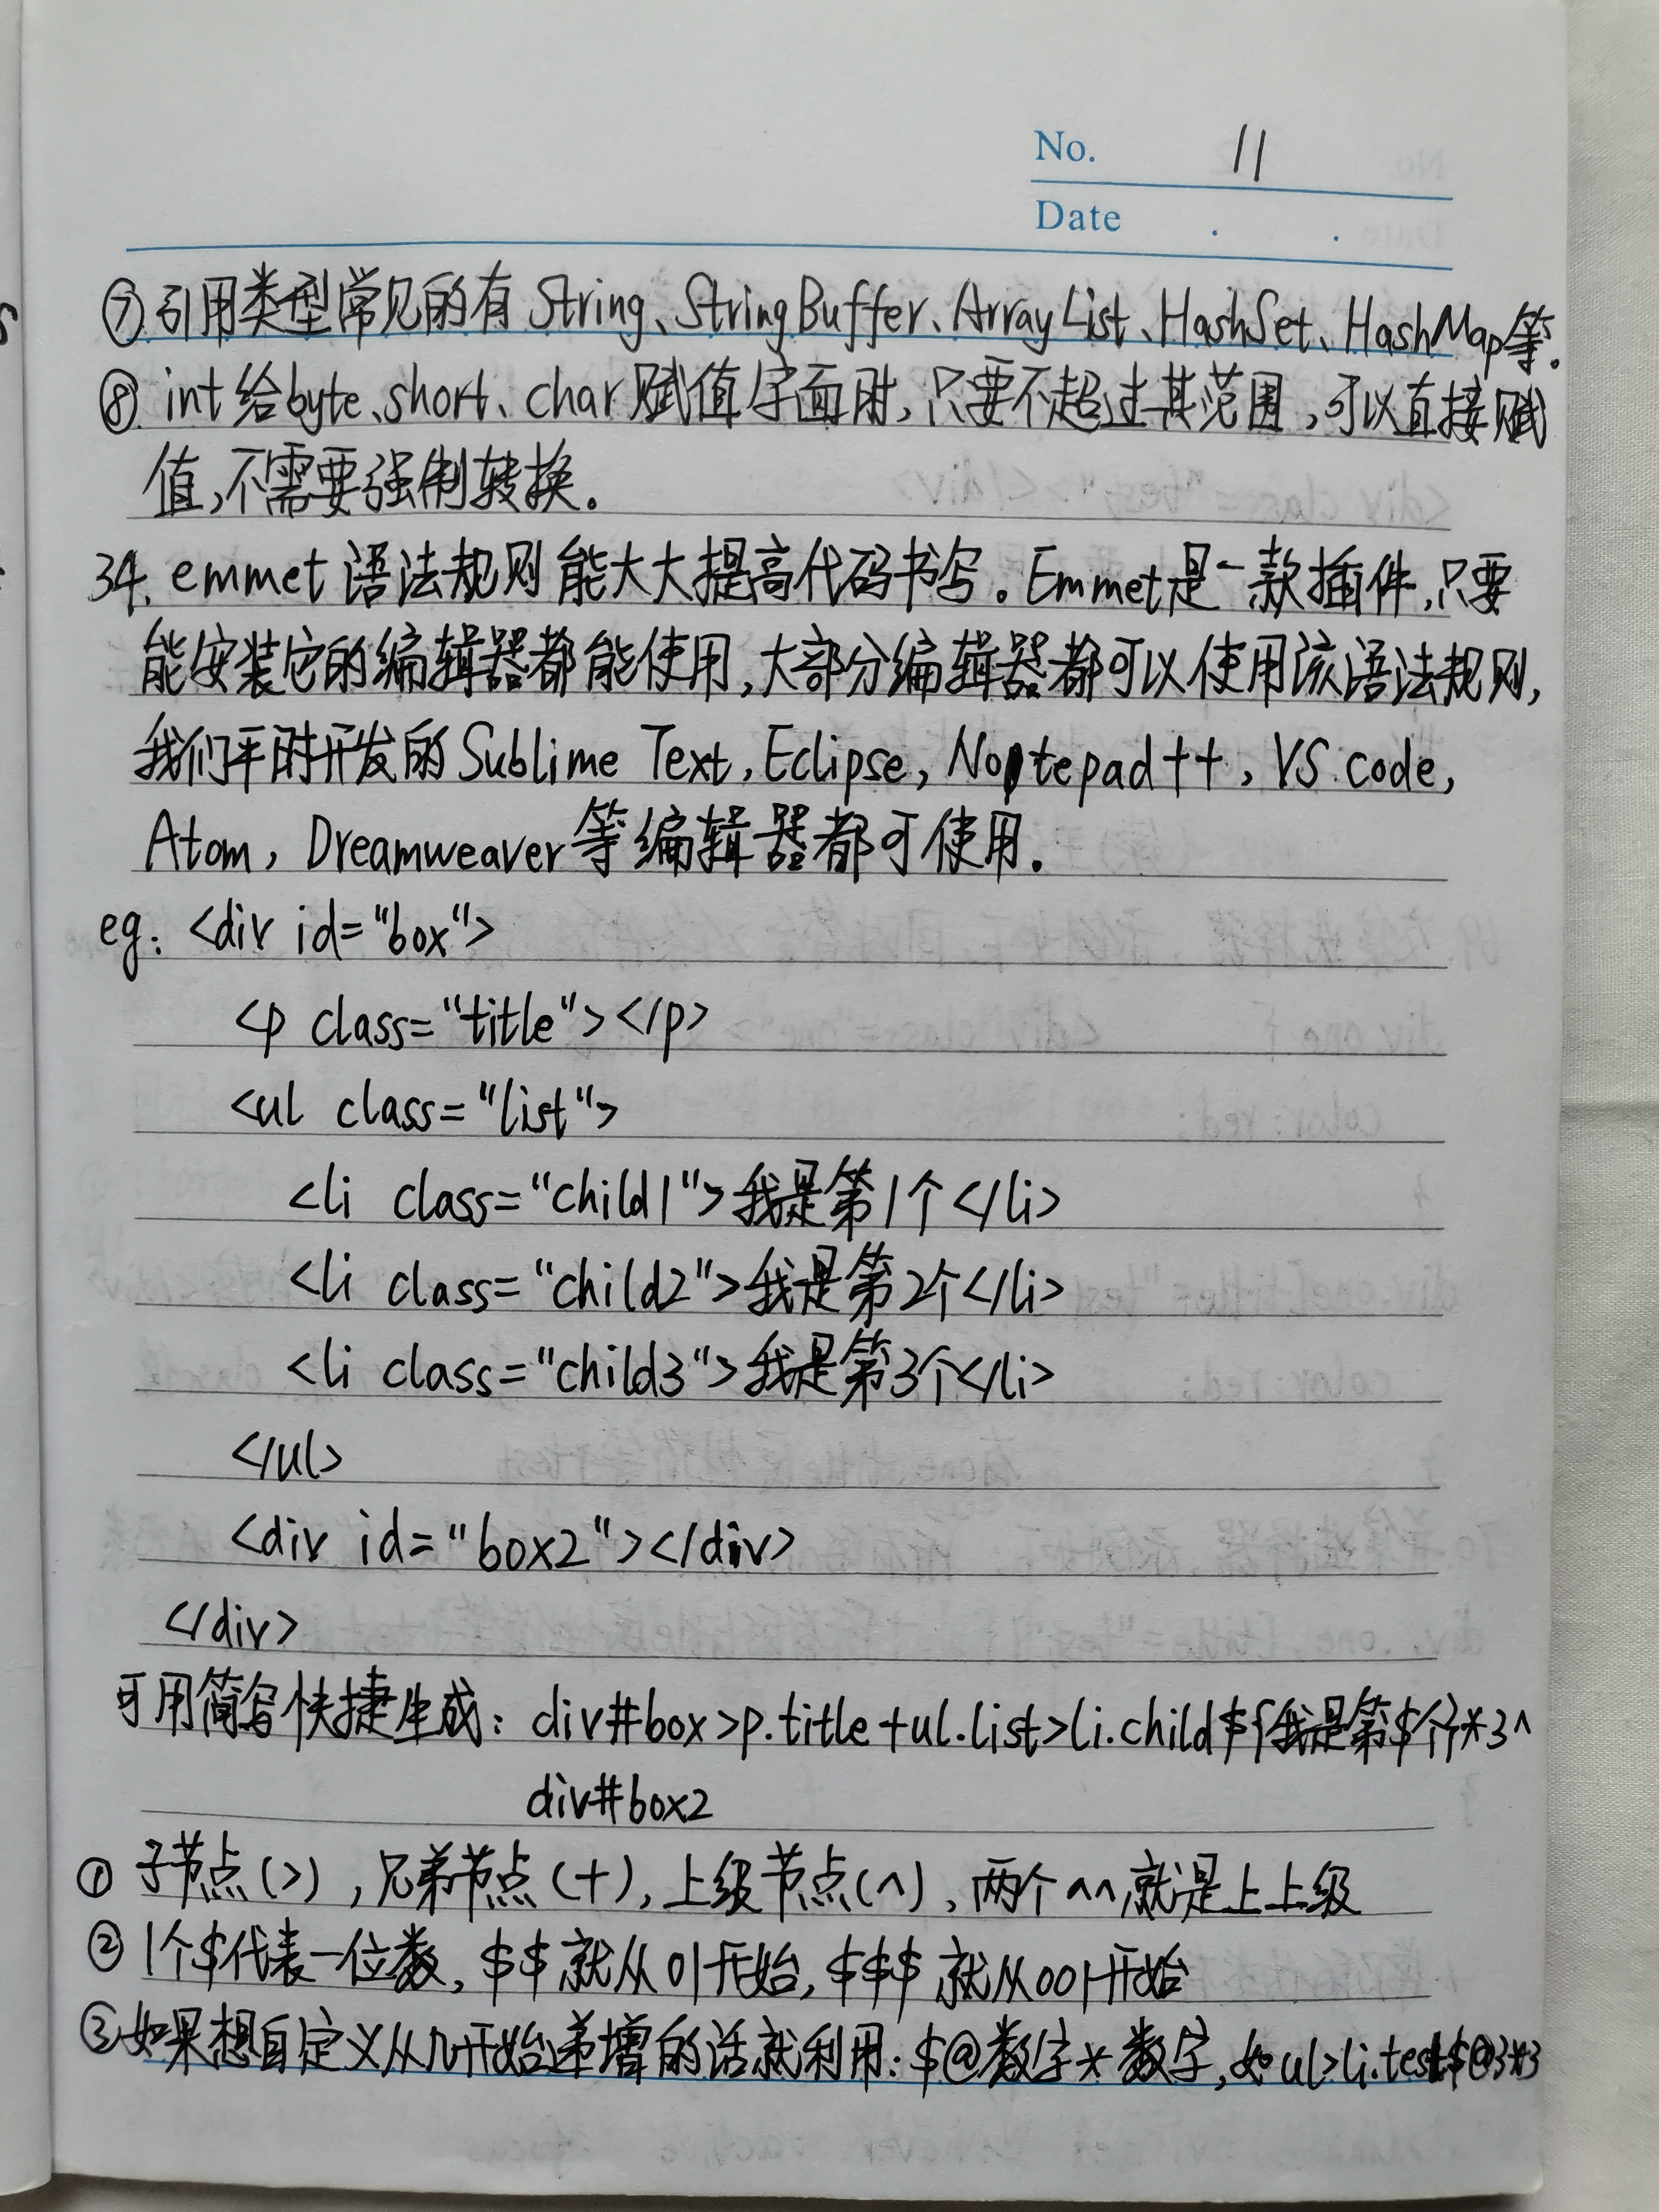 No. 11
Date . .
⑦引用类型常见的有String、StringBuffer、ArrayList、HashSet、HashMap等.
⑧ int给byte、short、char赋值字面时,只要不超过其范围,可以直接赋
值,不需要强制转换。
34. emmet语法规则能大大提高代码书写。Emmet是一款插件,只要
能安装它的编辑器都能使用,大部分编辑器都可以使用该语法规则,
我们平时开发的Sublime Text, Eclipse, Notepad++, VS code,
Atom, Dreamweaver等编辑器都可使用.
eg: <div id="box">
<p class="title"></p>
<ul class="list">
<li class="child1">我是第1个</li>
<li class="child2">我是第2个</li>
<li class="child3">我是第3个</li>
</ul>
<div id="box2"></div>
</div>
可用简写快捷生成: div#box>p.title+ul.list>li.child${我是第$个}*3^
div#box2
① 子节点(>),兄弟节点(+),上级节点(^),两个^^就是上上级
② 1个$代表一位数,$$就从01开始,$$$就从001开始
③如果想自定义从几开始递增的话就利用:$@数字*数字,如ul>li.test$@3*3